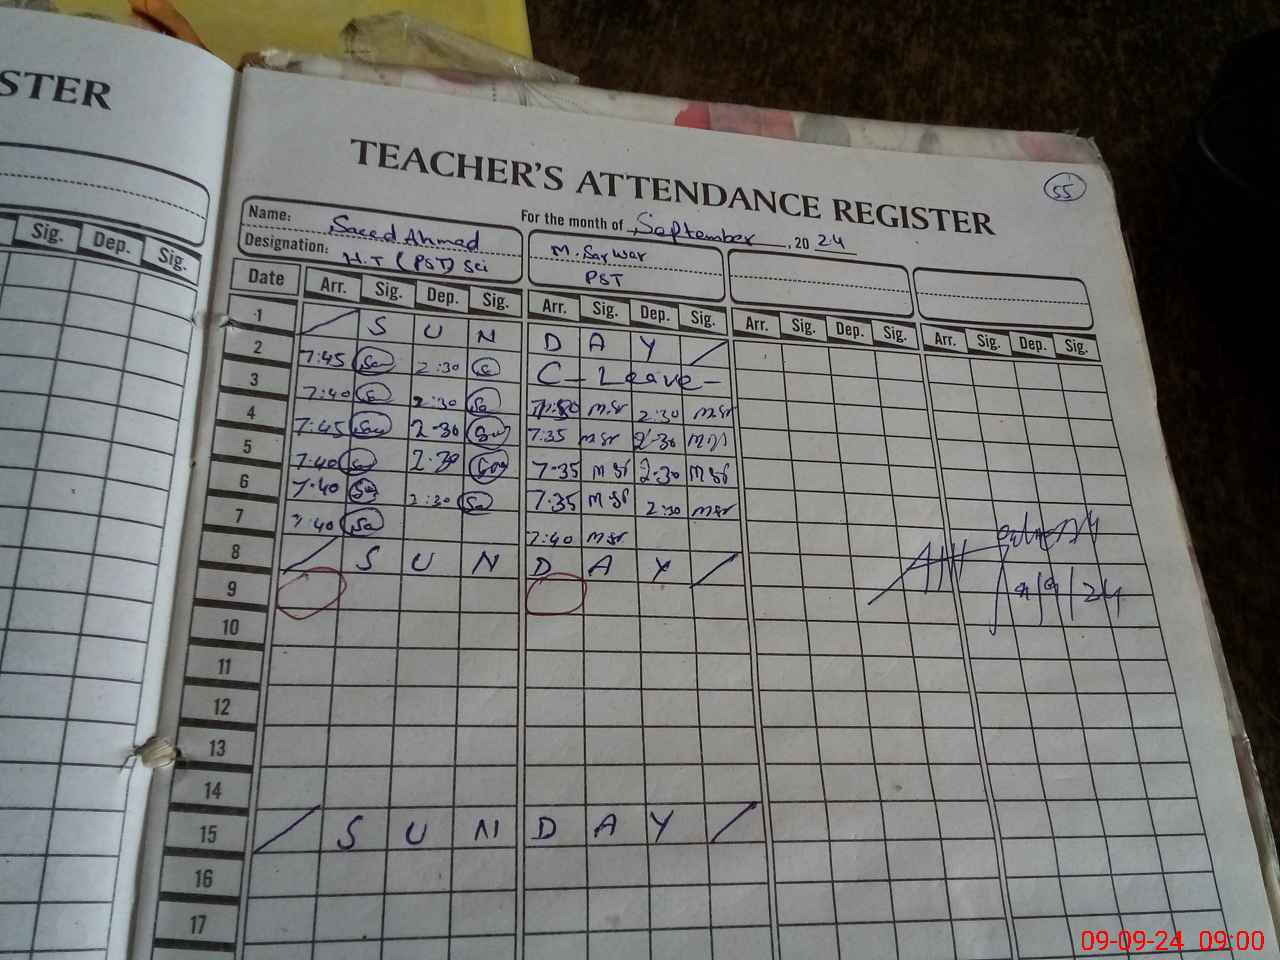 STER
TEACHER'S ATTENDANCE REGISTER
55
For the month of September, 2024
Name: Saeed Ahmad M. Sarwar
Designation: H.T (PST) Sci PST
Sig. Dep. Sig.
Date Arr. Sig. Dep. Sig. Arr. Sig. Dep. Sig. Arr. Sig. Dep. Sig. Arr. Sig. Dep. Sig.
1 S U N D A Y
2 7:45 Sa 2:30 S C-Leave-
3 7:40 S 2:30 Sa M.Sr 2:30 M.Sr
4 7:45 Sae 2-30 7:35 M Sr 2-30
5 7:40 Sa 2-30 7-35 M Sr 2-30 M Sr
6 7:40 Sa 2:30 Sa 7:35 M Sr 2:30 M Sr
7 7:40 Sa 7:40 M Sr
8 S U N D A Y
9
10
11
12
13
14
15 S U N D A Y
16
17
9/9/24
09-09-24 09:00